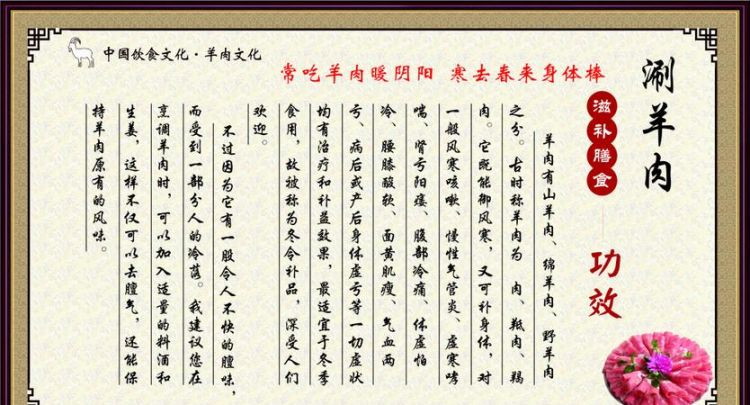 中国饮食文化·羊肉文化
常吃羊肉暖阴阳 寒去春来身体棒
涮羊肉
滋补膳食
功效
羊肉有山羊肉、绵羊肉、野羊肉
之分。古时称羊肉为 肉、羝肉、羯
肉。它既能御风寒，又可补身体，对
一般风寒咳嗽、慢性气管炎、虚寒哮
喘、肾亏阳痿、腹部冷痛、体虚怕
冷、腰膝酸软、面黄肌瘦、气血两
亏、病后或产后身体虚亏等一切虚状
均有治疗和补益效果，最适宜于冬季
食用，故被称为冬令补品，深受人们
欢迎。
不过因为它有一股令人不快的膻味，
而受到一部分人的冷落。我建议您在
烹调羊肉时，可以加入适量的料酒和
生姜，这样不仅可以去膻气，还能保
持羊肉原有的风味。